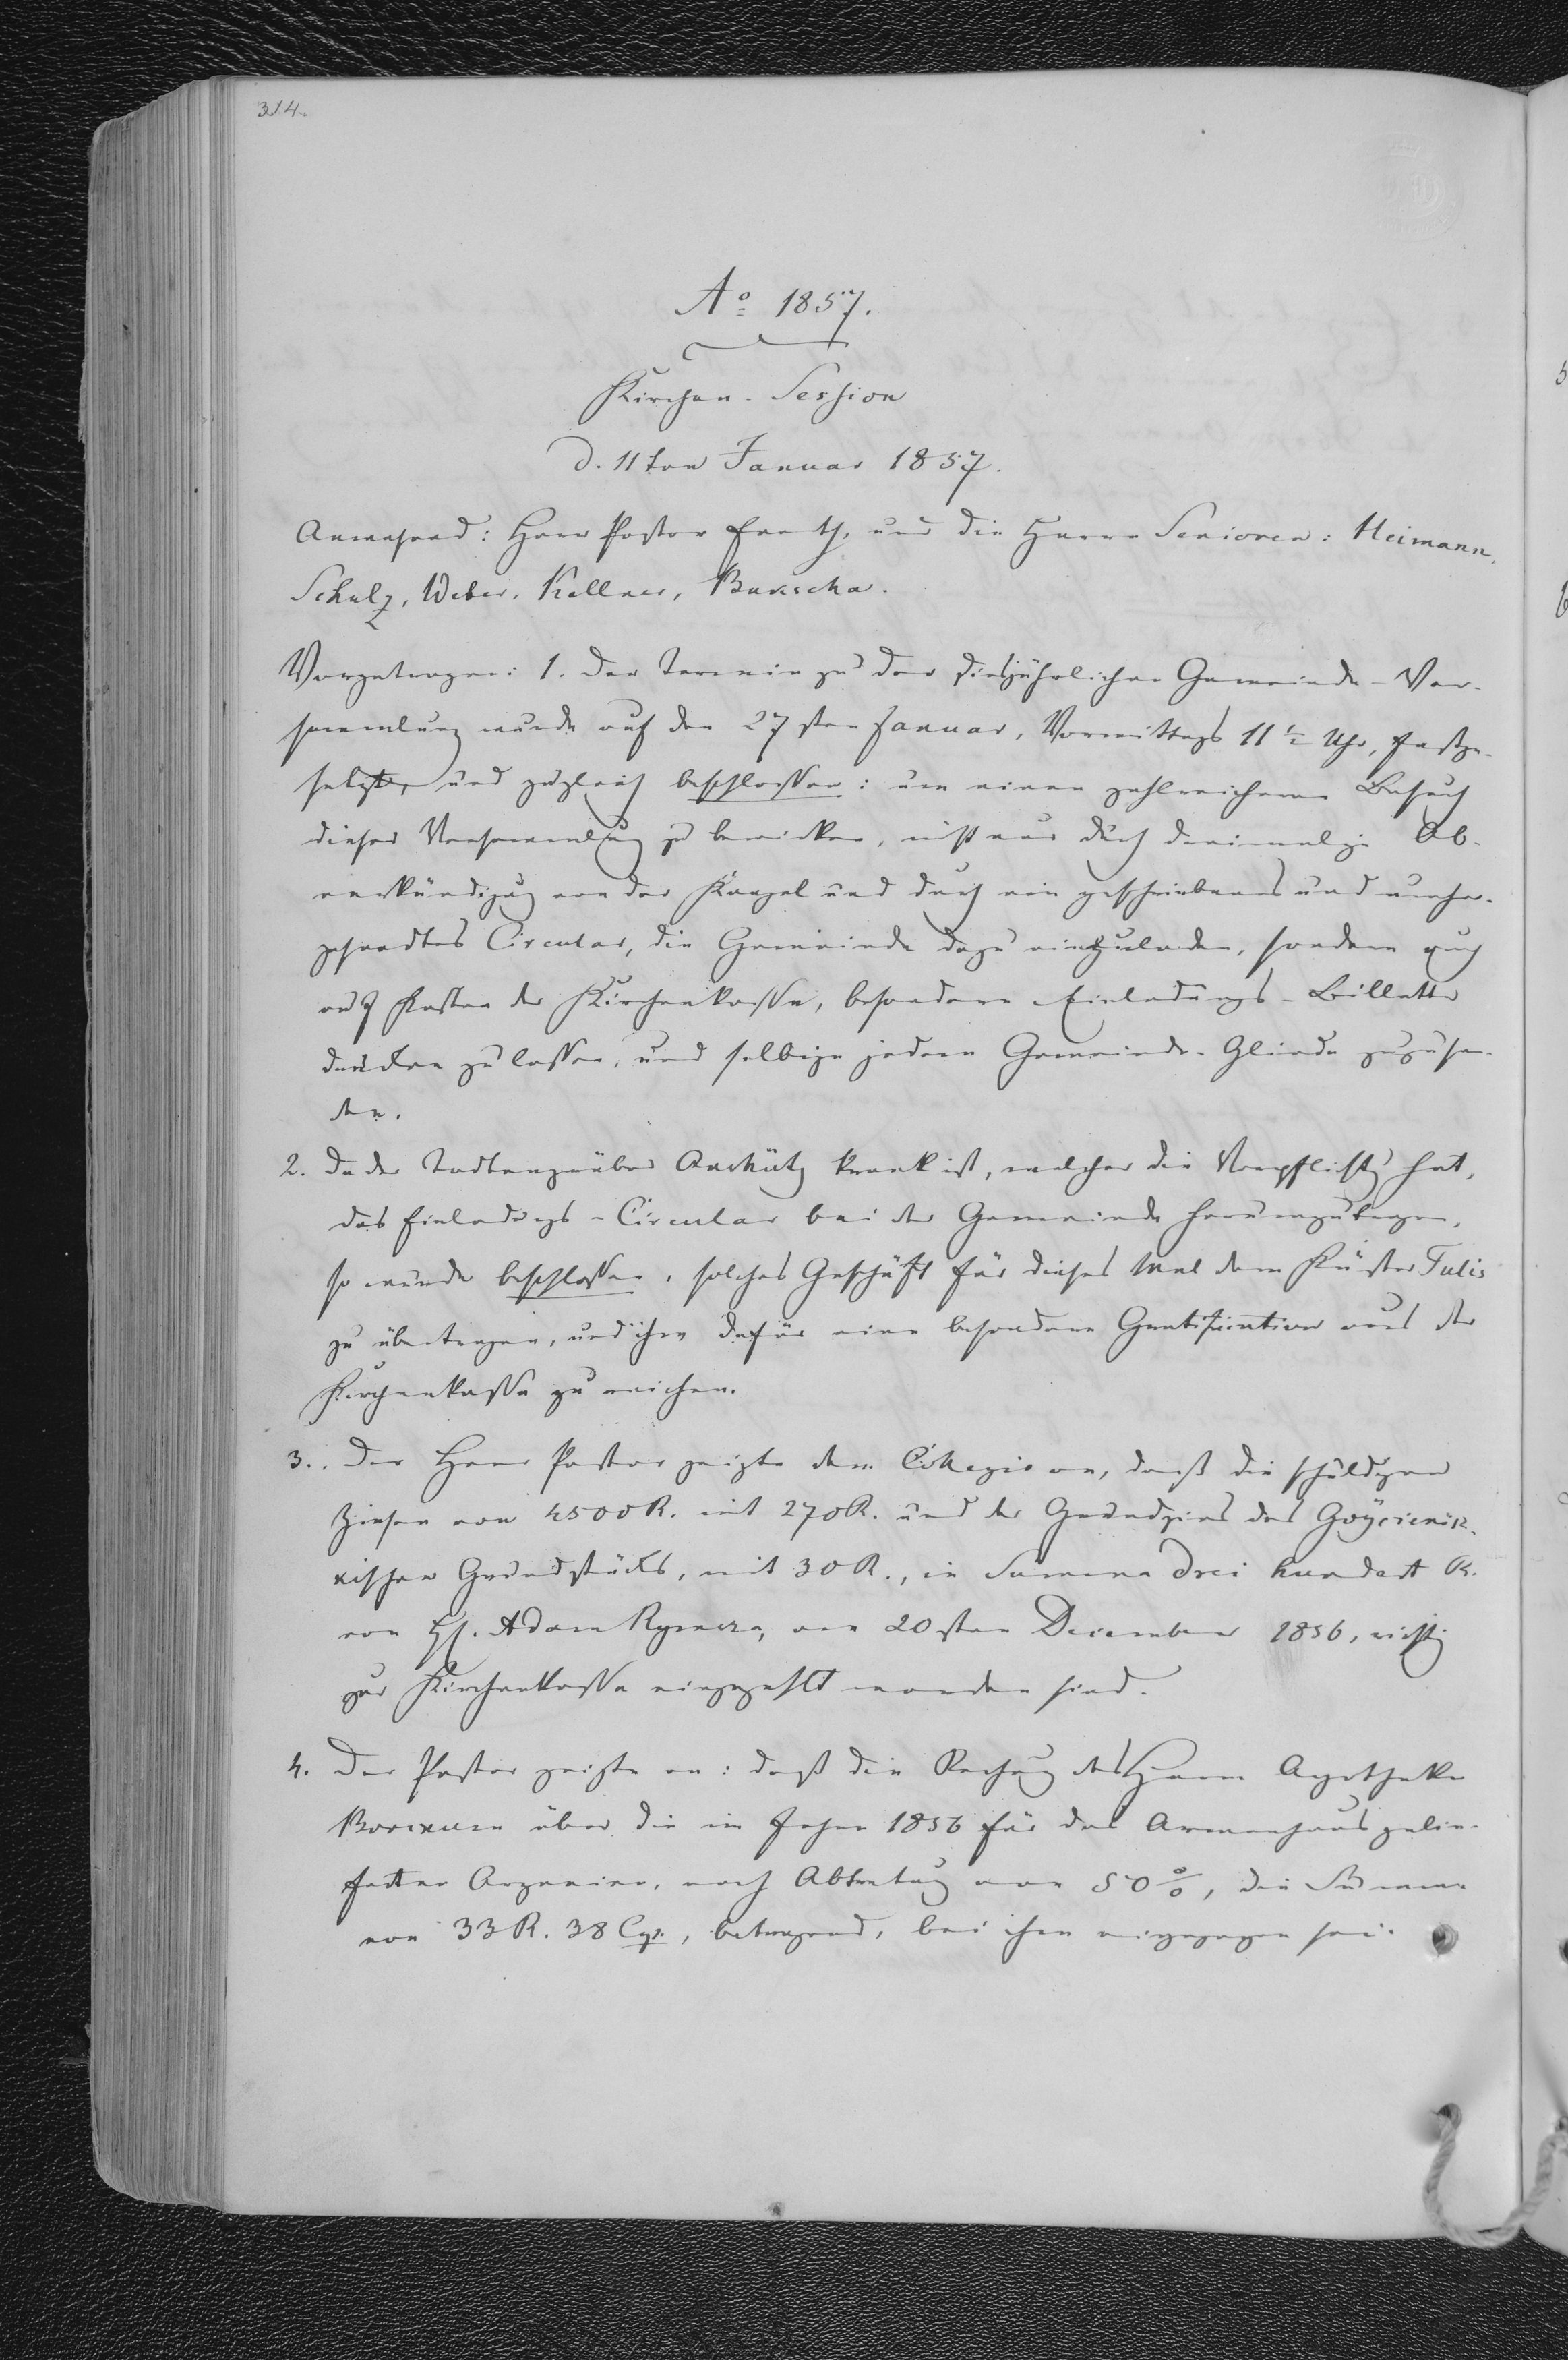 314.
Aº 1857.
Kirchen-Session
d. 11ten Januar 1857.
Anwesend: Herr Pastor und die Herren Senioren: Heimann,
Schulz, Weber, Kellner,
Vorgetragen: 1. Der Termin zu der diesjährlichen Gemeinde-Ver-
sammlung wurde auf den 27sten Januar, Vormittags 11½ Uhr, festge-
setzt, und zugleich beschlossen: um einen zahlreicheren Besuch
dieser Versammlung zu bewirken, nicht nur durch dreimalige Ab-
verkündigung von der Kanzel und durch ein geschriebenes und umher-
gesandtes Circular, die Gemeinde dazu einzuladen, sondern auch
auf Kosten der Kirchenkasse, besondere Einladungs-Billette
drucken zu lassen, und selbige jedem Gemeinde-Gliede zuzusen-
den.
2. Da der Todtengräber krank ist, welcher die Verpflichtg hat,
das Einladungs-Circular bei der Gemeinde herumzutragen,
so wurde beschlossen, solches Geschäft für dieses Mal dem Küster Tulis
zu übertragen, und ihm dafür eine besondere Gratification aus der
Kirchenkasse zu reichen.
3. Der Herr Pastor zeigte dem Collegio an, daß die schuldigen
Zinsen von 4500 R. mit 270 R. und der Grundzins des
schen Grundstücks, mit 30 R., in Summa drei hundert R.
von H. Adam am 20sten December 1856, richtig
zur Kirchenkasse eingezahlt worden sind.
4. Der Pastor zeigte an: daß die Rechnung des Herrn Apotheker
über die im Jahre 1856 für das Armenhaus gelie-
ferten Arzneien, nach Abtretung von 50 %, die Summe
von 33 R. 38 Cop., betragend, bei ihm eingegangen sei.